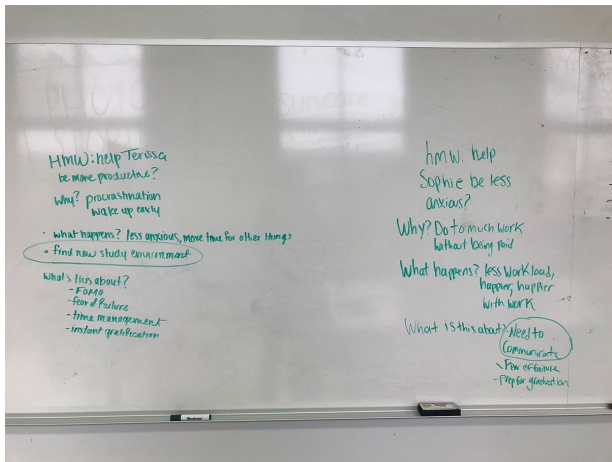 HMW: help Terissa
be more productive?
Why? procrastination
wake up early
• what happens? less anxious, more time for other things
• find new study environment
What's this about?
- FOMO
- fear of failure
- time management
- instant gratification
hmw. help
Sophie be less
anxious?
Why? Do to much work
without being paid
What happens? less workload,
happier, happier
with work
What is this about? Need to
Communicate
- Fear of failure
- prep for graduation